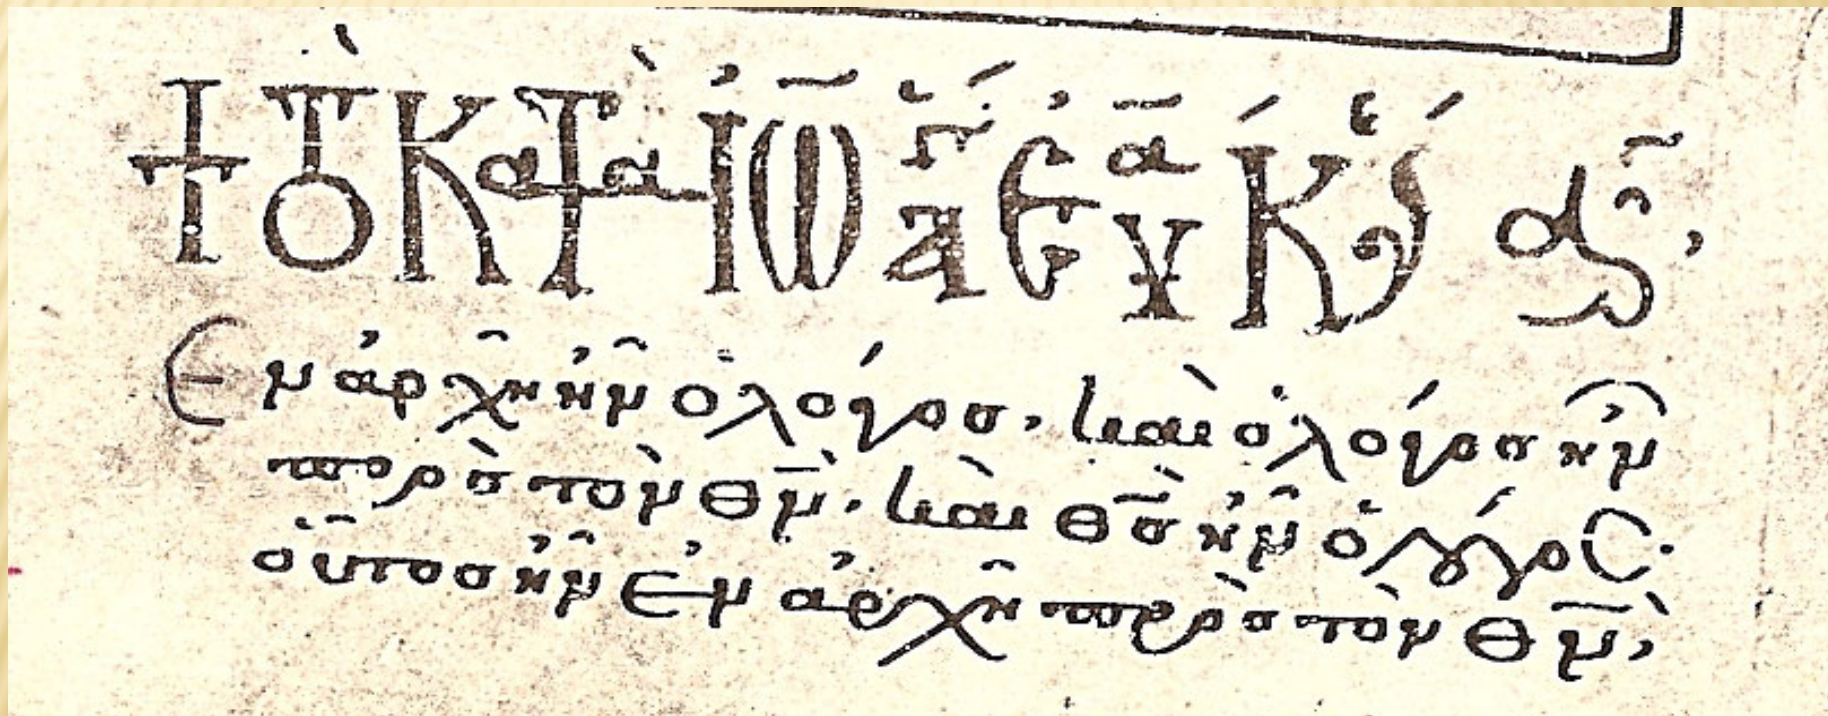 ✝ τὸ κατὰ ἰω̅ ευα̅
Ἐν ἀρχῆ ἦν ὁ λόγοσ, καὶ ὁ λόγοσ ἦν
πρὸσ τὸν θ̅ν̅. καὶ θ̅σ̅ ἦν ὁ λόγοσ·
οὗτοσ ἦν ἐν ἀρχῆ πρὸσ τὸν θ̅ν̅,